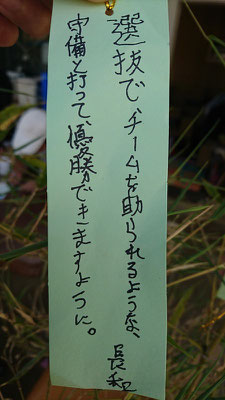 選抜で、チームを助られるような、
守備と打って、優勝できますように。
長和